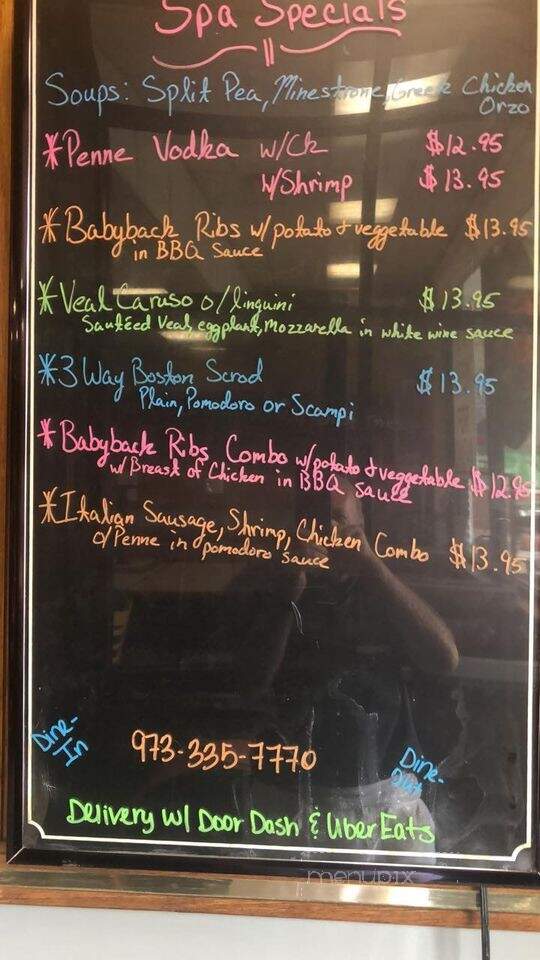 Spa Specials
Soups: Split Pea, Minestrone, Greek Chicken
Orzo
*Penne Vodka w/Ck $12.95
w/Shrimp $13.95
*Babyback Ribs w/potato + veggetable $13.95
in BBQ Sauce
*Veal Caruso o/linguini $13.95
Sautéed Veal, eggplant, Mozzarella in white wine sauce
*3 Way Boston Scrod $13.95
Plain, Pomodoro or Scampi
*Babyback Ribs Combo w/potato + veggetable $12.95
w/Breast of Chicken in BBQ Sauce
*Italian Sausage, Shrimp, Chicken Combo $13.95
o/Penne in pomodoro sauce
Dine-
In
973-335-7770
Dine-
Out
Delivery w/ Door Dash & Uber Eats
menupix